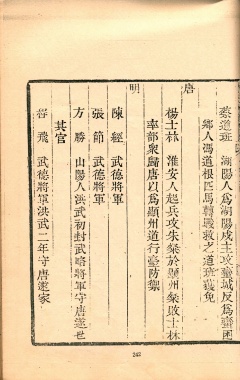 蔡道班 湖陽人爲湖陽戍主攻蠻城反爲蠻困
鄉人馮道根匹馬轉戰救之道班獲免
唐
楊士林 淮安人起兵攻朱粲於顯州粲敗士林
率部衆歸唐以爲顯州道行臺防禦
明
陳經 武德將軍
張節 武德將軍
方勝 山陽人洪武初封武略將軍守唐遂世
其官
飛 武德將軍洪武二年守唐遂家
242